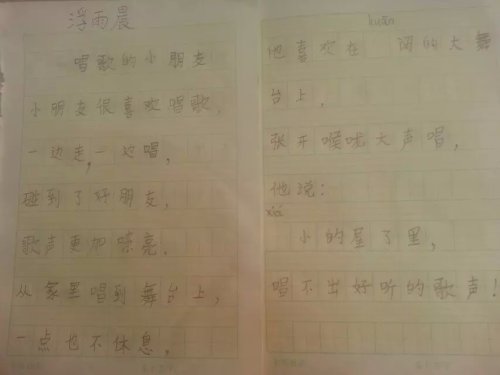 浮雨晨
唱歌的小朋友
小朋友很喜欢唱歌,
一边走,一边唱,
碰到了好朋友,
歌声更加嘹亮。
从家里唱到舞台上,
一点也不休息,
kuān
他喜欢在 阔的大舞
台上,
张开喉咙大声唱,
他说:
小的屋子里,
唱不出好听的歌声!